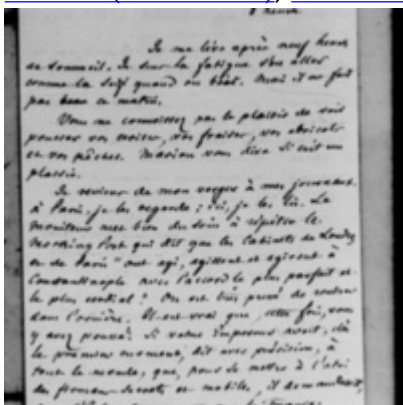 8 heures
Je me lève après neuf heures
de sommeil. Je sens la fatigue s'en aller
comme la soif quand on boit. Mais il ne fait
pas beau ce matin.
Vous ne connaissez pas le plaisir de voir
pousser vos raisins, vos fraises, vos abricots
et vos pêches. Marion vous dira si c'est un
plaisir.
Je reviens de mon verger à mes journaux
à Paris, je les regarde ; ici, je les lis. Le
moniteur met bien du soin à répéter le
Morning Post qui dit que les Cabinets de Londres
et de Paris " ont agi, agissent et agiront à
Constantinople avec l'accord le plus parfait et
le plus cordial ! On est bien pressé de rentrer
dans l'ornière. Il est vrai que, cette fois, vous
y avez poussé. Si votre Empereur avait, dès
le premier moment, dit avec précision, à
tout le monde, que, pour se mettre à l'abri
des firmans secrets et mobiles, il demandait,